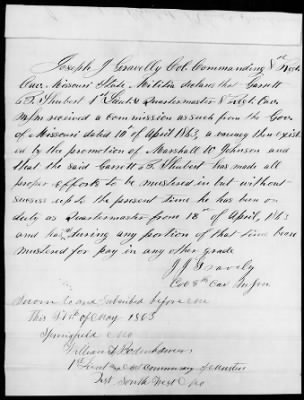 Joseph J Gravelly Col. Commanding 8th Regt
Cav. Missouri State Militia declares that Garrett
S. Shubert 1st Lieut & Quartermaster 8" Regt. Cav
M S M received a commission as such from the Gov
of Missouri dated 10th of April 1863, a vacancy then exist
ed by the promotion of Marshall W Johnson and
that the said Garrett S. Shubert has made all
proper efforts to be mustered in but without
success up to the present time he has been on
duty as Quartermaster from 18th of April, 1863
and has during any portion of that time been
mustered for pay in any other grade
J J Gravely
Col 8th Cav M S M
Sworn to and Subscribed before me
This day of May 1863
Springfield Mo
William
1st Lieut and Commissary of Musters
Dist South West Mo